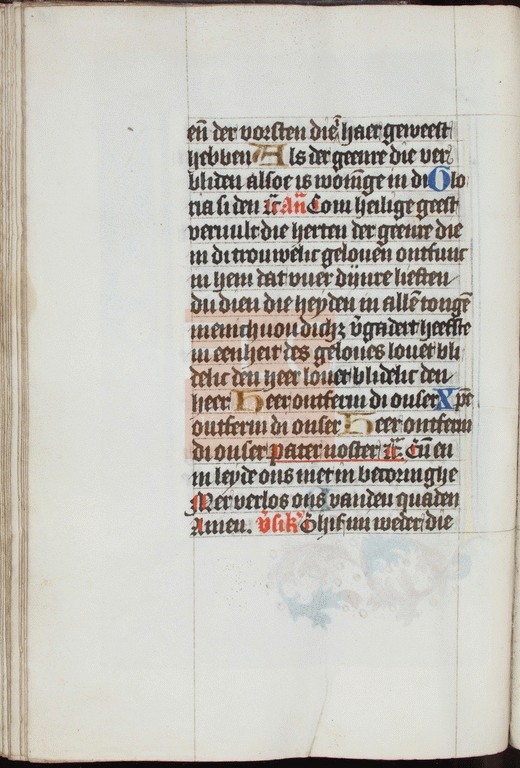 eñ der vorsten die haer geweest
hebben Als der geenre die ver
bliden alsoe is woninge in di Glo
ria si den Añ Com heilige geest
veruult die herten der geenre die
in di trouwelic gelouen ontfunc
in hem dat vuer dijnre lieften
du dien die heyden in allē tongē
menichuoudich vgadert heefste
in eenheit des geloues louet bli
delic den heer louet blidelic den
heer Heer ontferm di onser Xpē
ontferm di onser Heer ontferm
di onser pater noster Eñ en
in leyde ons niet in becoringhe
Mer verlos ons vanden quaden
Amen. Ghif mi weder die